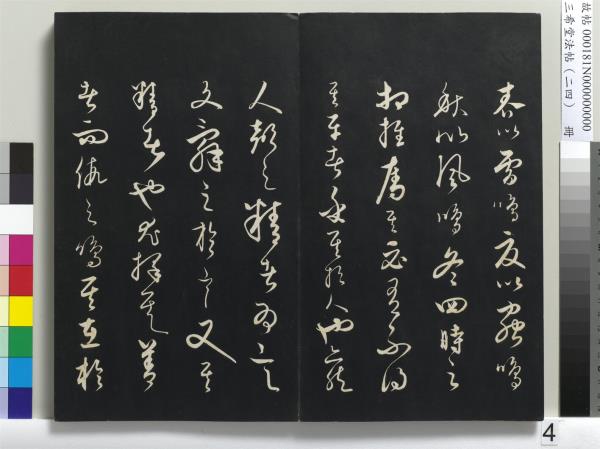 故帖 000181N000000000
三希堂法帖(二四) 冊
春以雷鳴夏以蟲鳴
秋以風鳴冬四時之
相推奪其必有不得
其平者乎其於人也亦然
人聲之精者為言
文辭之於言又其
精者也尤擇其善
者而假之鳴其在於
4